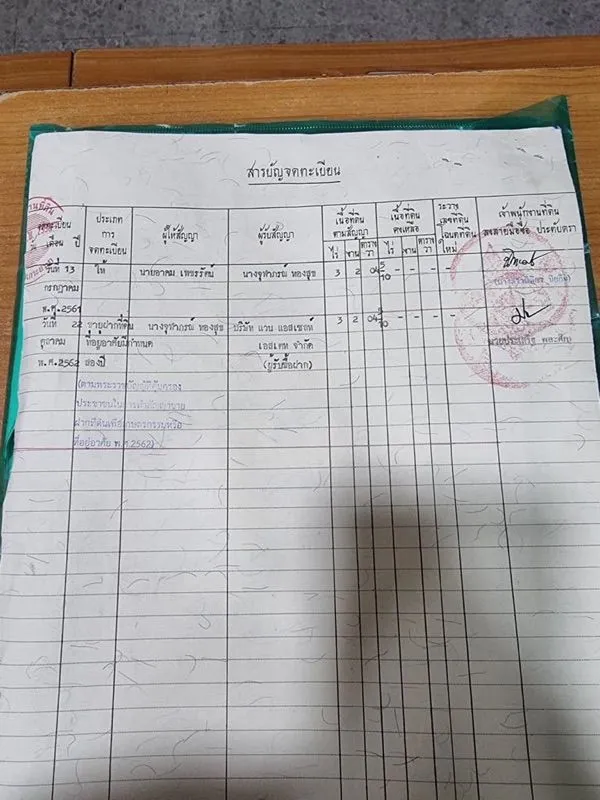 สารบัญจดทะเบียน
จดทะเบียน
เดือน ปี
ประเภท
การ
จดทะเบียน
ผู้ให้สัญญา
ผู้รับสัญญา
เนื้อที่ดิน
ตามสัญญา
ไร่ งาน ตารางวา
เนื้อที่ดิน
คงเหลือ
ไร่ งาน ตารางวา
ระวาง
เลขที่ดิน
โฉนดที่ดิน
ใหม่
เจ้าพนักงานที่ดิน
ลงลายมือชื่อ ประทับตรา
วันที่ 13 ให้ นายอาคม เพชรรัตน์ นางจุฬาภรณ์ ทองสุข 3 2 04 5/10 - - - -
กรกฎาคม
พ.ศ.2561
วันที่ 22 ขายฝากที่ดิน นางจุฬาภรณ์ ทองสุข บริษัท แวน แอสเซทส์ 3 2 04 5/10 - - - -
ตุลาคม ที่อยู่อาศัยมีกำหนด เอสเตท จำกัด
พ.ศ.2562 สองปี (ผู้รับซื้อฝาก)
(ตามพระราชบัญญัติคุ้มครอง
ประชาชนในการทำสัญญาขาย
ฝากที่ดินเพื่อเกษตรกรรมหรือ
ที่อยู่อาศัย พ.ศ.2562)